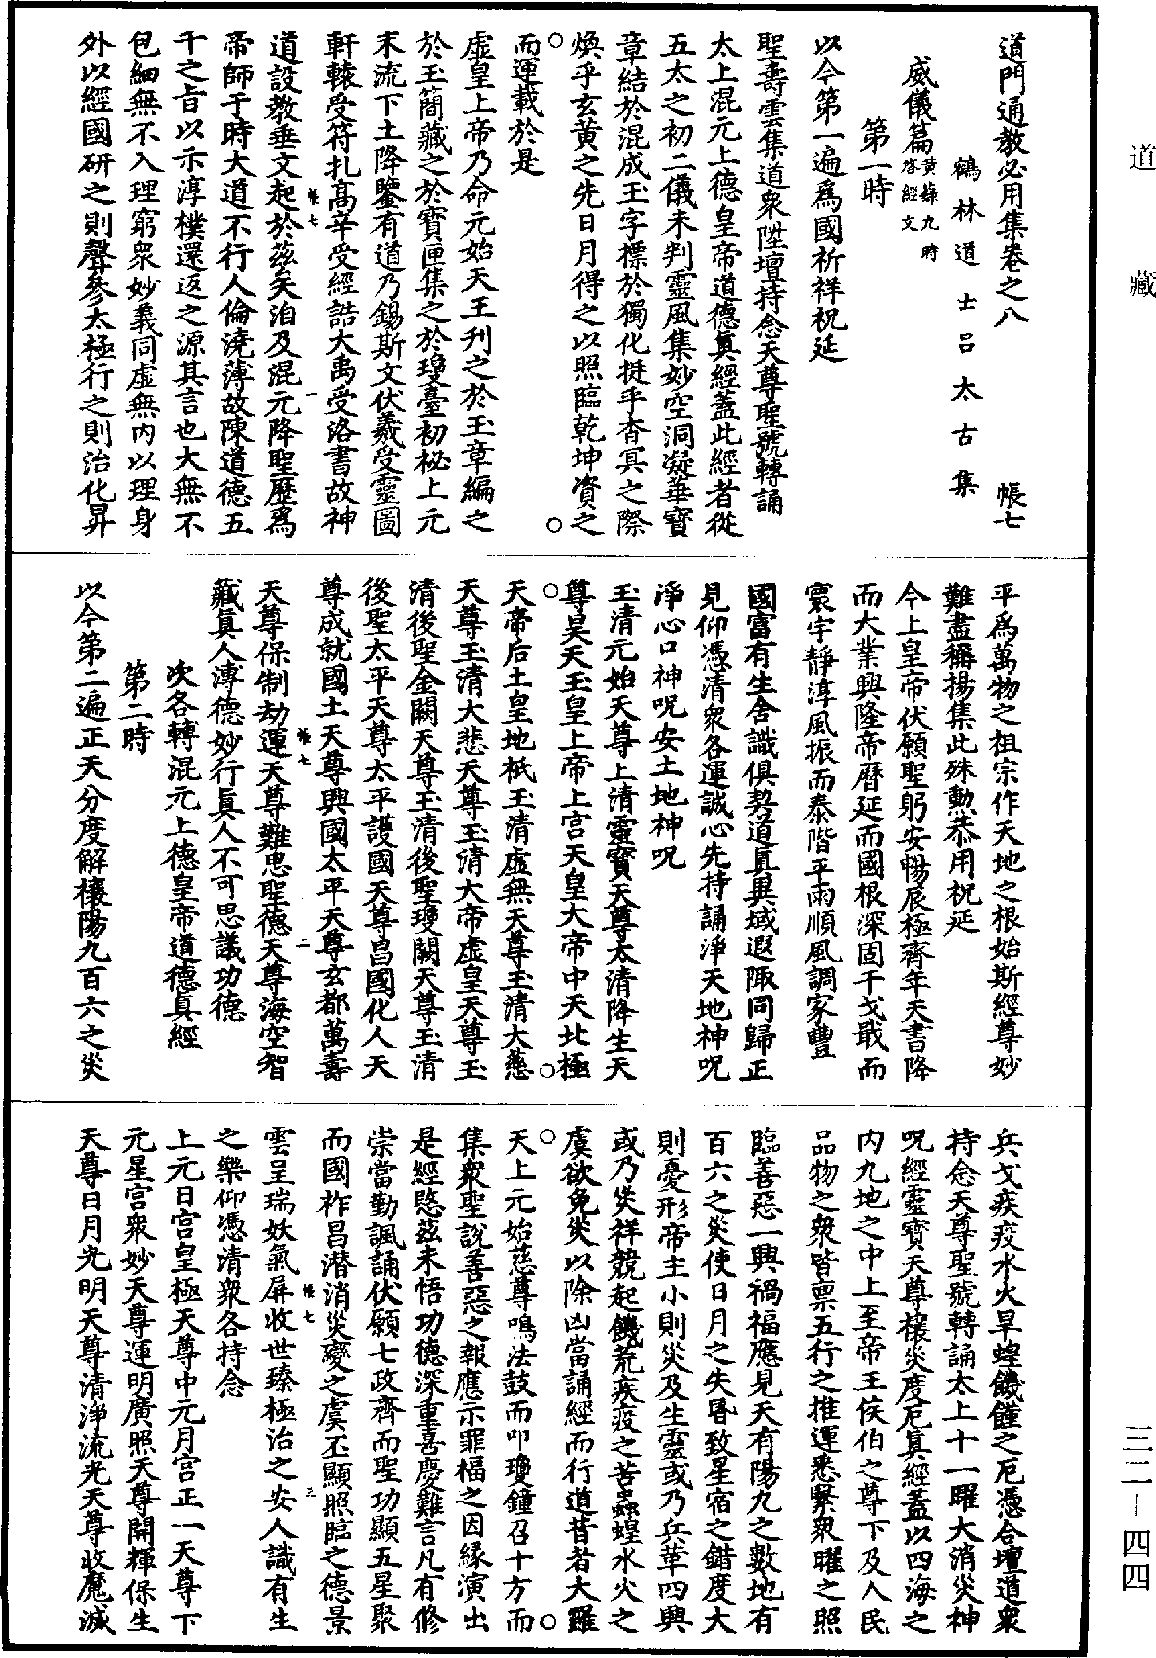 道藏
三二－四四
道門通教必用集卷之八　帳七
鶴林道士呂太古集
威儀篇黃籙九時啓經文
第一時
以今第一遍爲國祈祥祝延
聖壽雲集道衆陞壇持念天尊聖號轉誦
太上混元上德皇帝道德眞經蓋此經者從
五太之初二儀未判靈風集妙空洞凝華寶
章結於混成玉字標於獨化挺乎杳冥之際
煥乎玄黃之先日月得之以照臨乾坤資之
而運載於是
虛皇上帝乃命元始天王刋之於玉章編之
於玉簡藏之於寶匣集之於瓊臺初秘上元
末流下土降鑒有道乃錫斯文伏羲受靈圖
軒轅受符札高辛受經誥大禹受洛書故神
道設教垂文起於茲矣洎及混元降聖歷爲
帝師于時大道不行人倫澆薄故陳道德五
千之旨以示淳樸還返之源其言也大無不
包細無不入理窮衆妙義同虛無內以理身
外以經國研之則聲參太極行之則治化昇
平爲萬物之祖宗作天地之根始斯經尊妙
難盡稱揚集此殊勲恭用祝延
今上皇帝伏願聖躬安暢辰極齊年天書降
而大業興隆帝曆延而國根深固干戈戢而
寰宇靜淳風振而泰階平雨順風調家豐
國富有生含識俱契道眞異域遐陬同歸正
見仰憑清衆各運誠心先持誦淨天地神呪
淨心口神呪安土地神呪
玉清元始天尊上清靈寶天尊太清降生天
尊昊天玉皇上帝上宮天皇大帝中天北極
天帝后土皇地祇玉清虛無天尊玉清大慈
天尊玉清大悲天尊玉清大帝虛皇天尊玉
清後聖金闕天尊玉清後聖瓊闕天尊玉清
後聖太平天尊太平護國天尊昌國化人天
尊成就國土天尊興國太平天尊玄都萬壽
天尊保制劫運天尊難思聖德天尊海空智
藏眞人溥德妙行眞人不可思議功德
次各轉混元上德皇帝道德眞經
第二時
以今第二遍正天分度解禳陽九百六之災
兵戈疾疫水火旱蝗饑饉之厄憑合壇道衆
持念天尊聖號轉誦太上十一曜大消災神
呪經靈寶天尊禳災度厄眞經蓋以四海之
內九地之中上至帝王侯伯之尊下及人民
品物之衆皆稟五行之推運悉繫衆曜之照
臨善惡一興禍福應見天有陽九之數地有
百六之災使日月之失昏致星宿之錯度大
則憂形帝主小則災及生靈或乃兵革四興
或乃災祥競起饑荒疾疫之苦蟲蝗水火之
虞欲免災以除凶當誦經而行道昔者大羅
天上元始慈尊鳴法鼓而叩瓊鐘召十方而
集衆聖說善惡之報應示罪福之因緣演出
是經愍茲未悟功德深重喜慶難言凡有修
崇當勤諷誦伏願七政齊而聖功顯五星聚
而國柞昌潛消災變之虞丕顯照臨之德景
雲呈瑞妖氣屏收世臻極治之安人識有生
之樂仰憑清衆各持念
上元日宮皇極天尊中元月宮正一天尊下
元星宮衆妙天尊運明廣照天尊開輝保生
天尊日月光明天尊清淨流光天尊收魔滅
帳七　一
帳七　二
帳七　三